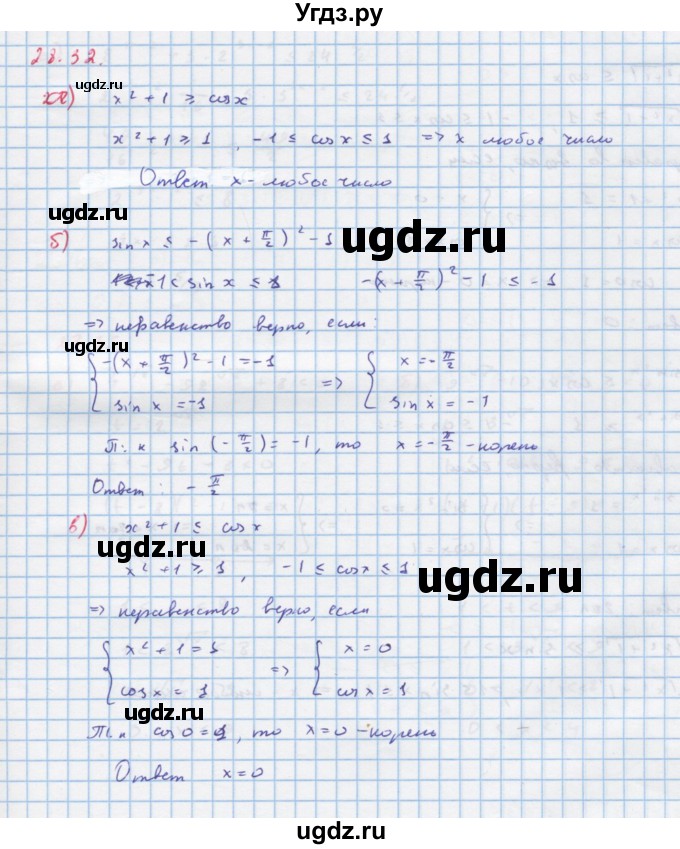 Угдз.ру
28.32.
а) x² + 1 ≥ cos x
x² + 1 ≥ 1 , -1 ≤ cos x ≤ 1 => x любое число
Ответ x - любое число
ugdz.ru
б) sin x ≤ -(x + π/2)² - 1
ugdz.ru
1 ≤ sin x ≤ 1 -(x + π/2)² - 1 ≤ -1
=> неравенство верно, если:
ugdz.ru
{ -(x + π/2)² - 1 = -1 => { x = -π/2
sin x = -1 sin x = -1
Т.к sin(-π/2) = -1, то x = -π/2 - корень
Ответ: -π/2
в) x² + 1 ≤ cos x
ugdz.ru
x² + 1 ≥ 1, -1 ≤ cos x ≤ 1
ugdz.ru
=> неравенство верно, если
{ x² + 1 = 1 => { x = 0
cos x = 1 cos x = 1
ugdz.ru
Т.к cos 0 = 1, то x = 0 - корень
Ответ x = 0
ugdz.ru